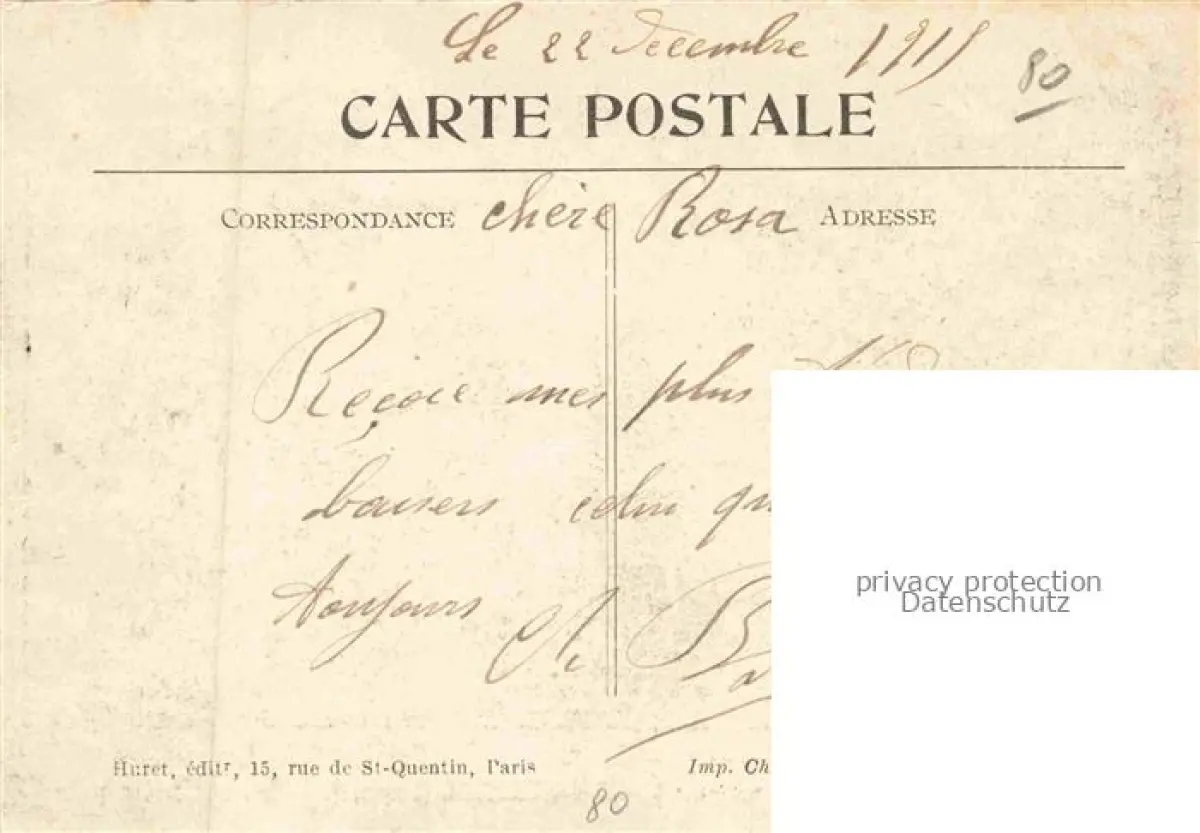 Le 22 Decembre 1915
80
CARTE POSTALE
CORRESPONDANCE chère Rosa ADRESSE
Reçoie mes plus
baisers celui qu
toujours
privacy protection
Datenschutz
Huret, éditr, 15, rue de St-Quentin, Paris
Imp. Ch
80